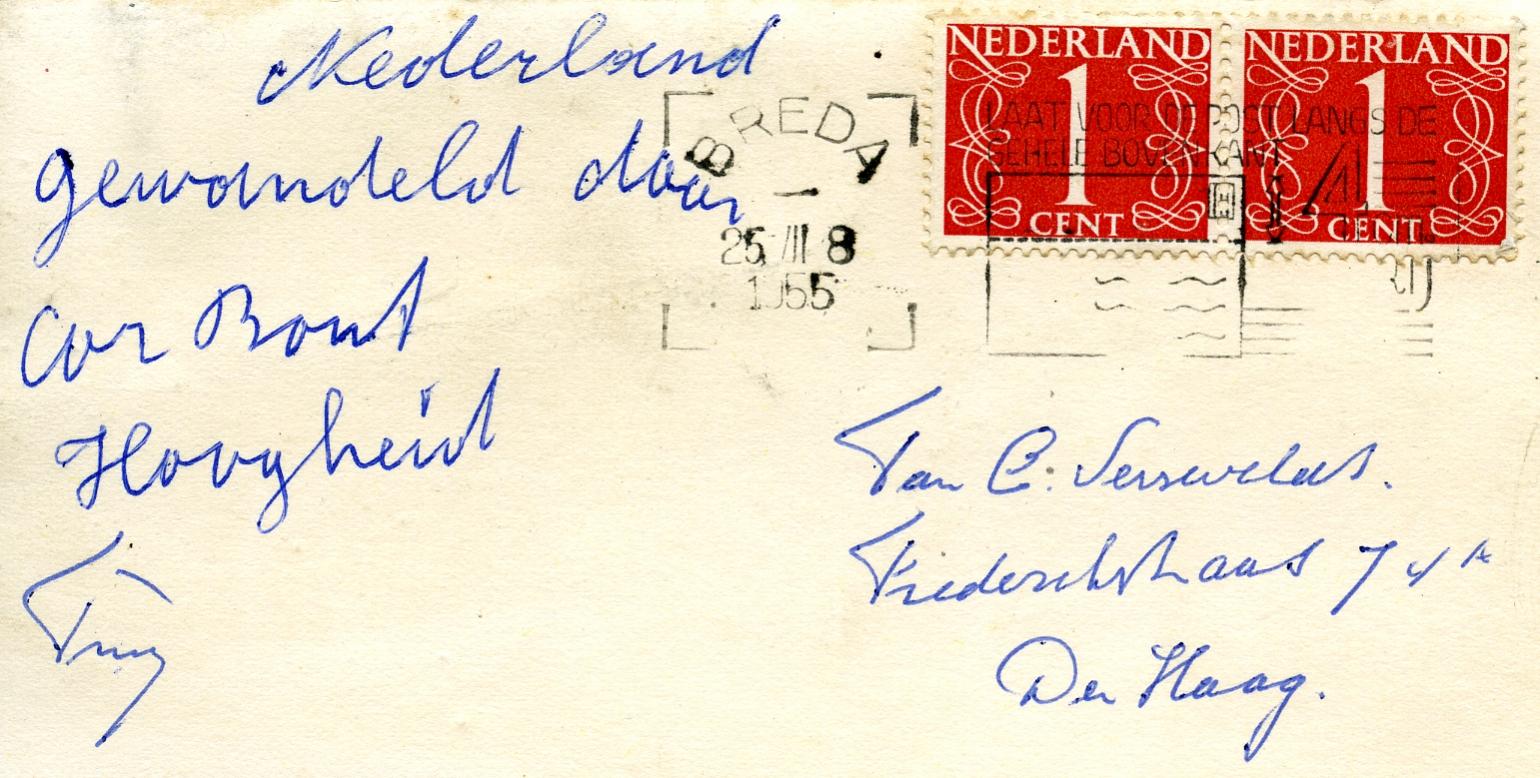 Nederland
gewandeld door
Cor Bout
Hoogheid
Truy
BREDA
25 VII 8
1955
NEDERLAND
1
CENT
NEDERLAND
1
CENT
LAAT VOOR DE POST LANGS DE
GEHELE BOVENKANT
VRIJ
Fam C. Verswelds.
Frederikstraat
Den Haag.